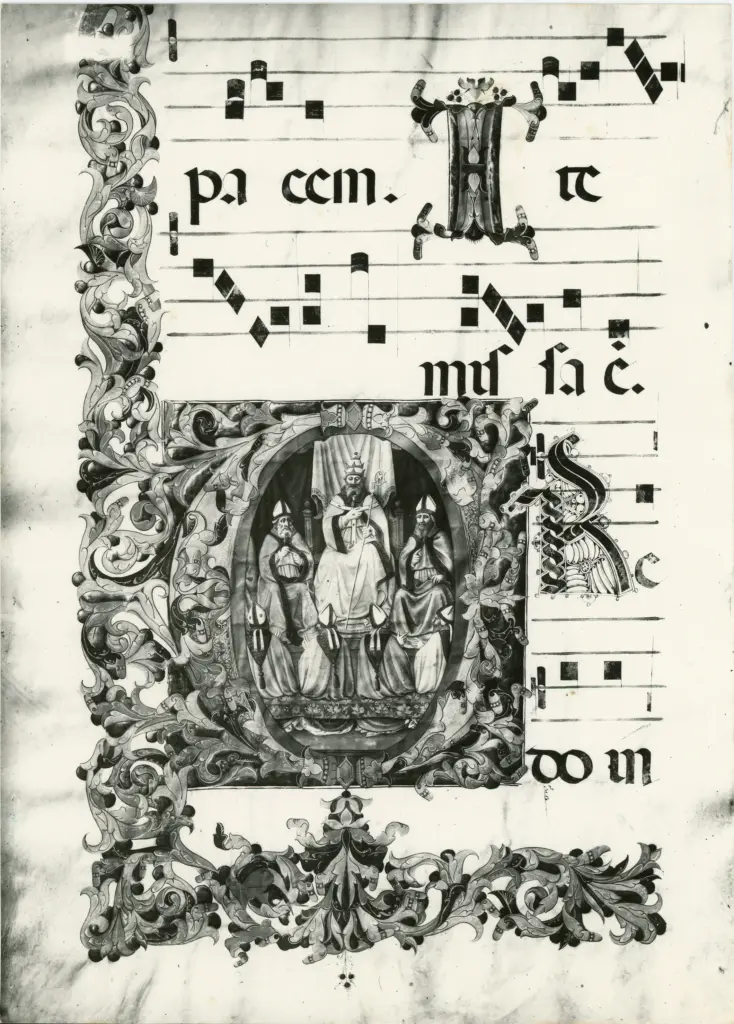 pa cem. I te
mis sa ē.
C R e
do in